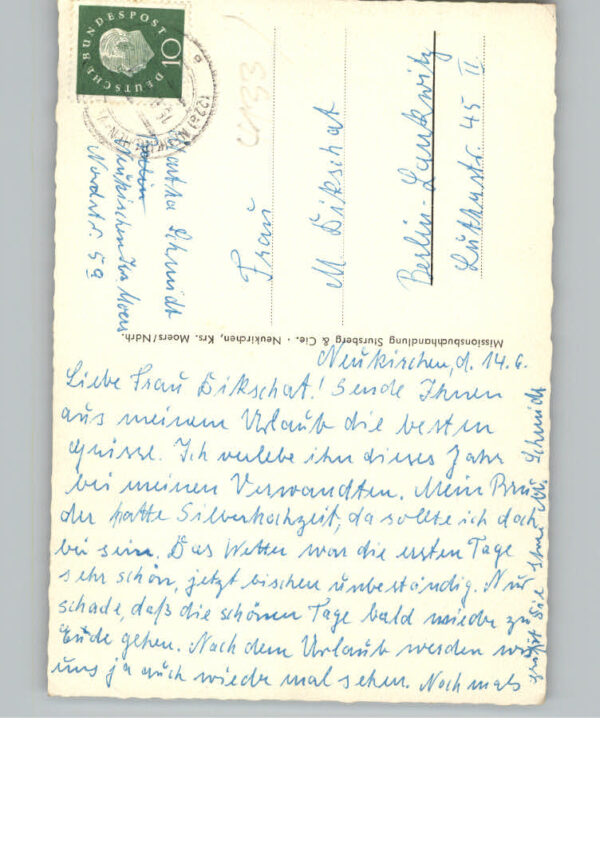 DEUTSCHE BUNDESPOST
10
Schmidt
Neukirchen Krs Moers
Nordstr. 5a
Frau
M Dikschat
Berlin-Lankwitz
45 II
Missionsbuchhandlung Stursberg & Cie. · Neukirchen, Krs. Moers/Ndrh.
Neukirchen, d. 14.6.
Liebe Frau Dikschat! Sende Ihnen
aus meinem Urlaub die besten
Grüsse. Ich verlebe ihn dieses Jahr
bei meinen Verwandten. Mein Bru
der hatte Silberhochzeit, da sollte ich doch
bei sein. Das Wetter war die ersten Tage
sehr schön, jetzt bischen unbeständig. Nur
schade, daß die schönen Tage bald wieder zu
Ende gehen. Nach dem Urlaub werden wir
uns ja auch wieder mal sehen. Noch mals
grüßt Sie Ihre M. Schmidt